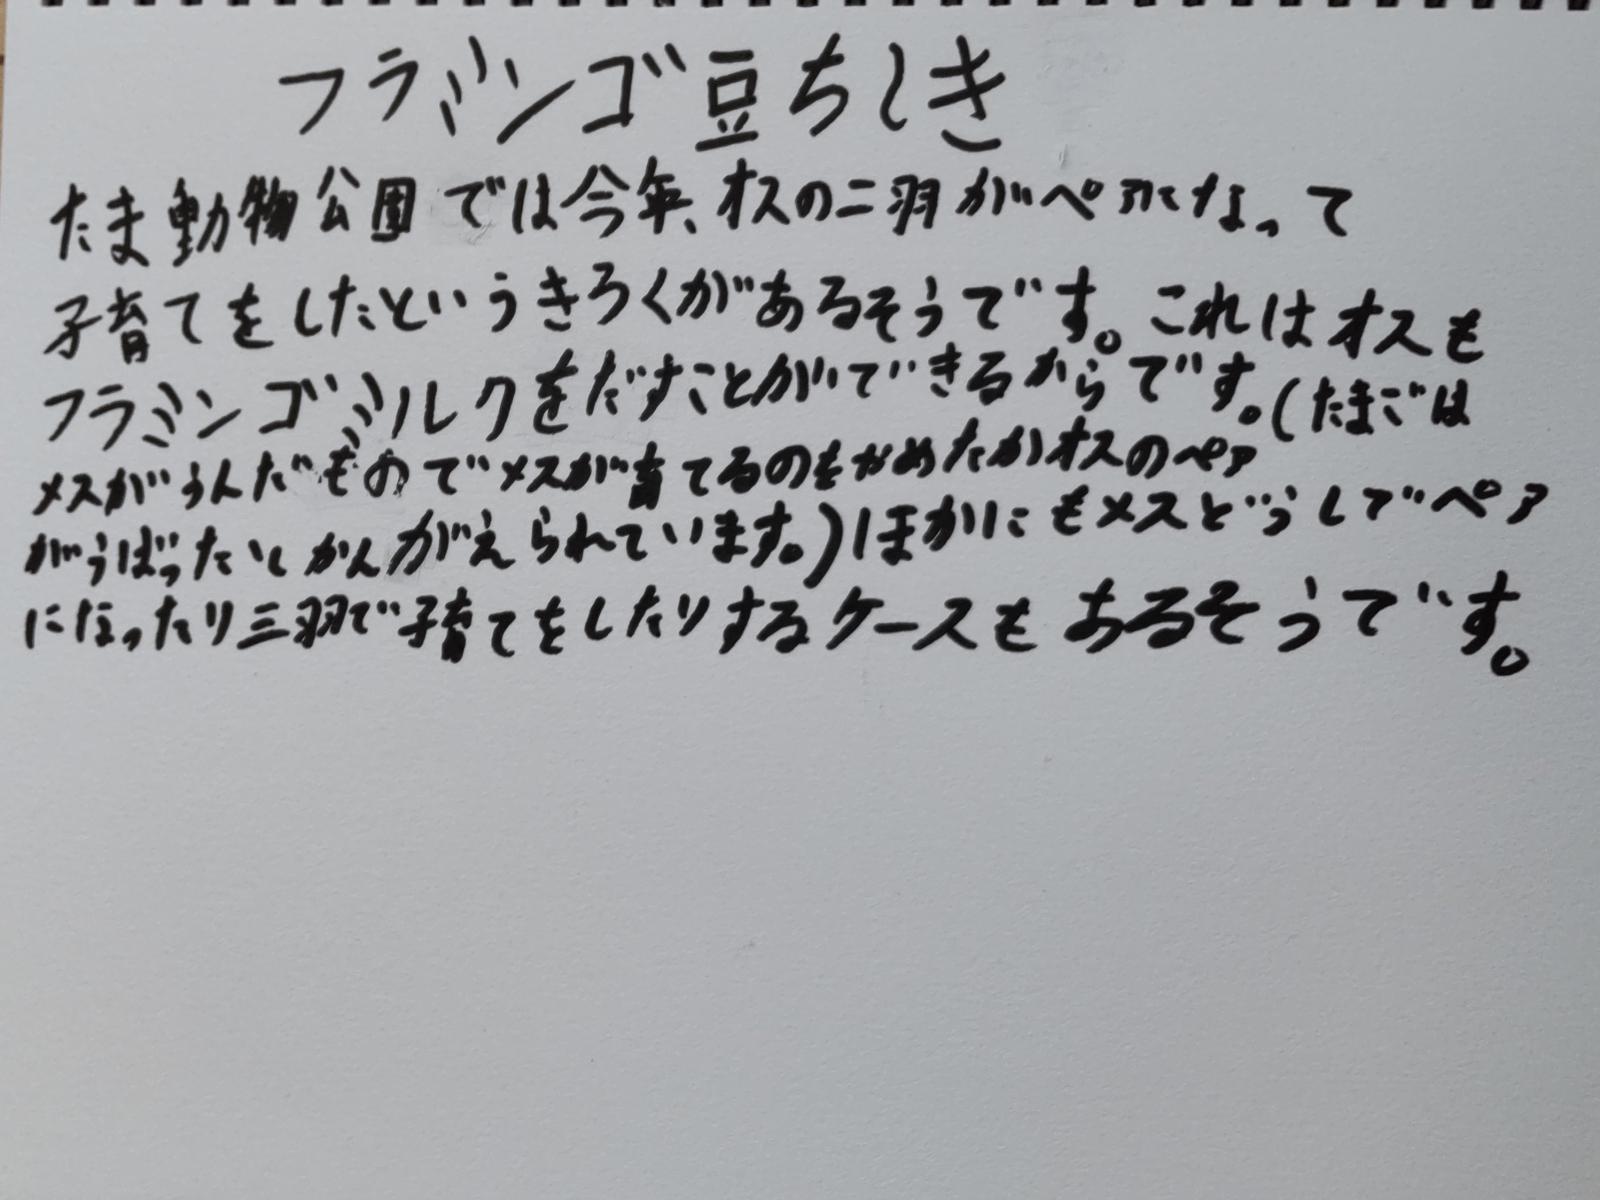 フラミンゴ豆ちしき
たま動物公園では今年、オスの二羽がペアになって
子育てをしたというきろくがあるそうです。これはオスも
フラミンゴミルクをだすことができるからです。(たまごは
メスがうんだものでメスが育てるのをやめたかオスのペア
がうばったとかんがえられています。)ほかにもメスどうしでペア
になったり三羽で子育てをしたりするケースもあるそうです。